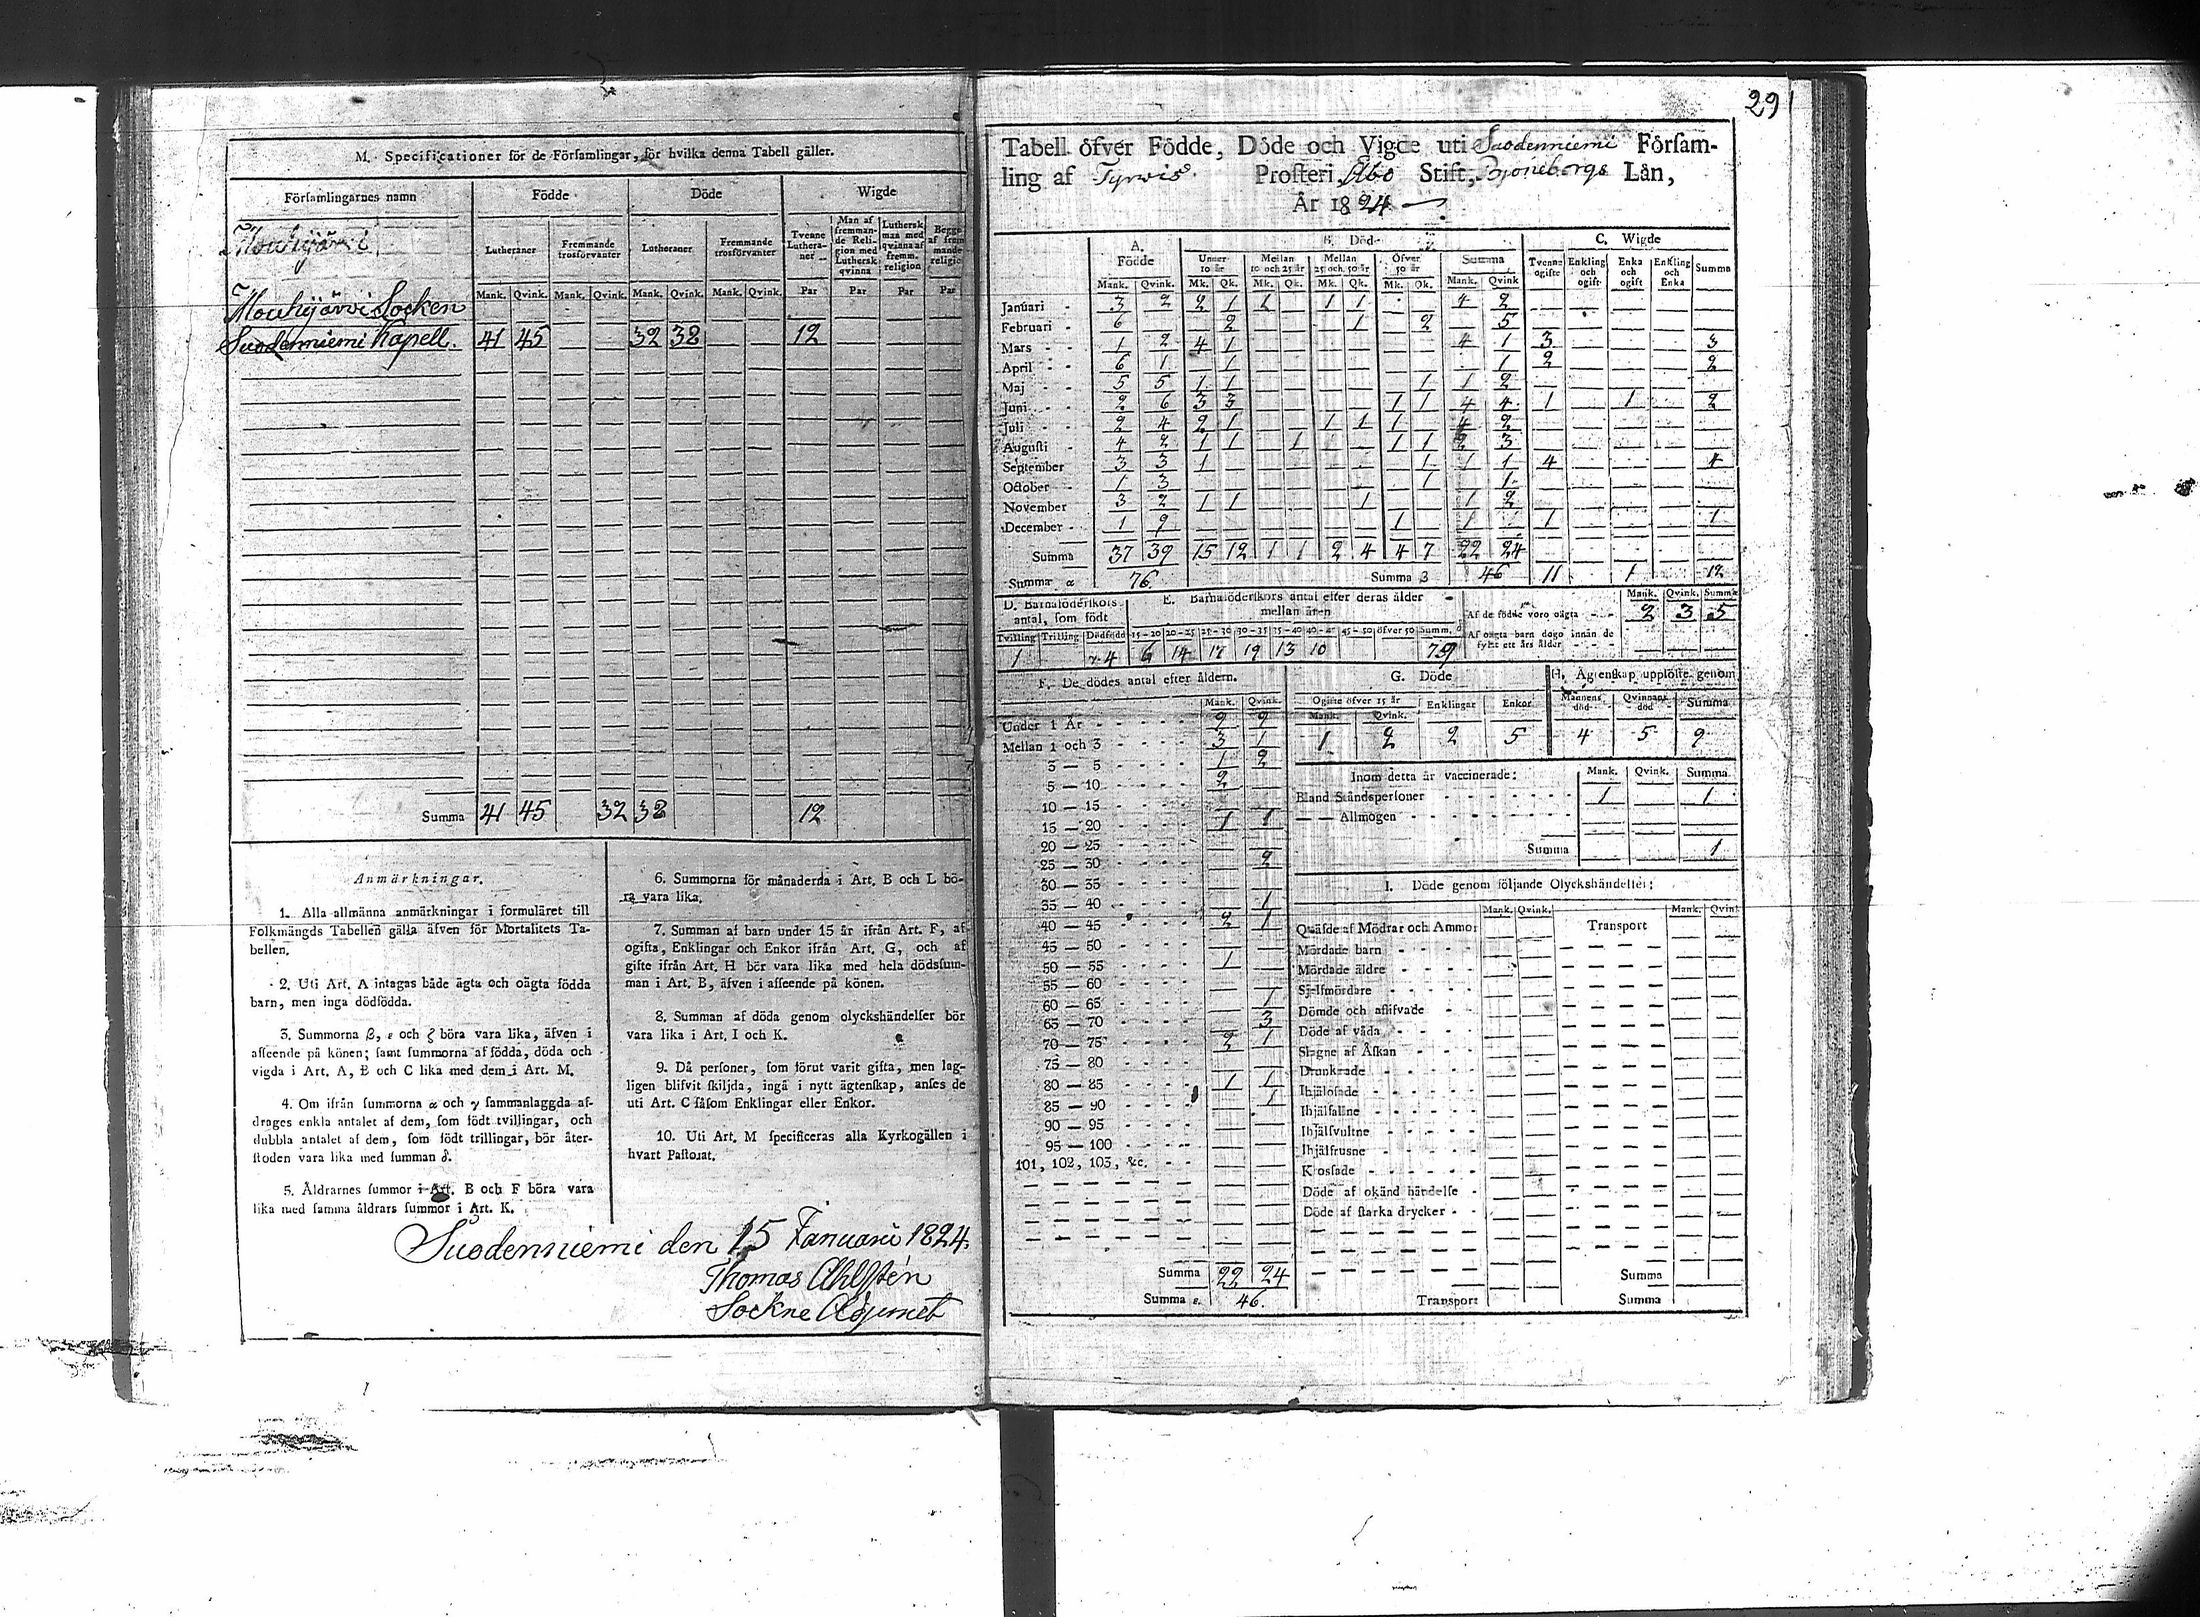 M. Specificationer för de Församlingar, för hvilka denna Tabell gäller.
Församlingarnes namn Födde Döde Wigde
Lutheraner Fremmande trosförvanter Lutheraner Fremmande trosförvanter Tvenne Lutheraner Man af fremmande Religion med Luthersk qvinna Luthersk man med qvinna af fremm. religion
Mank. Qvink. Mank. Qvink. Mank. Qvink. Mank. Qvink. Par Par Par Par
Mouhijärvi
Mouhijärvi Socken
Suodenniemi Kapell. 41 45 32 38 12
Summa 41 45 32 38 12
Anmärkningar.
1. Alla allmänna anmärkningar i formuläret till
Folkmängds Tabellen gälla äfven för Mortalitets Ta-
bellen.
2. Uti Art. A intagas både ägta och oägta födda
barn, men inga dödfödda.
3. Summorna β, ε och ζ böra vara lika, äfven i
afseende på könen; samt summorna af födda, döda och
vigda i Art. A, B och C lika med dem i Art. M.
4. Om ifrån summorna α och γ sammanlaggda af-
drages enkla antalet af dem, som födt tvillingar, och
dubbla antalet af dem, som födt trillingar, bör åter-
stoden vara lika med summan δ.
5. Åldrarnes summor i Art. B och F böra vara
lika med samma åldrars summor i Art. K.
6. Summorna för månaderna i Art. B och L bö-
ra vara lika.
7. Summan af barn under 15 år ifrån Art. F, af
ogifta, Enklingar och Enkor ifrån Art. G, och af
gifte ifrån Art. H bör vara lika med hela dödssum-
man i Art. B, äfven i afseende på könen.
8. Summan af döda genom olyckshändelser bör
vara lika i Art. I och K.
9. Då personer, som förut varit gifta, men lag-
ligen blifvit skiljda, ingå i nytt ägtenskap, anses de
uti Art. C såsom Enklingar eller Enkor.
10. Uti Art. M specificeras alla Kyrkogällen i
hvart Pastorat.
Suodenniemi den 15 Januarii 1824.
Thomas Ahlstén
Sockne Adjunct
291
Tabell öfver Födde, Döde och Vigde uti Suodenniemi Församling
af Tyrwis Prosteri, Åbo Stift, Björneborgs Län,
År 1824
A. Födde B. Döde C. Wigde
Under 10 år Mellan 10 och 25 år Mellan 25 och 50 år Öfver 50 år Summa Tvenne ogifte Enkling och ogift Enka och ogift Enkling och Enka Summa
Mank. Qvink. Mk. Qk. Mk. Qk. Mk. Qk. Mk. Qk. Mank. Qvink
Januari 3 2 2 1 1 1 1 4 2
Februari 6 2 1 2 5
Mars 1 2 4 1 4 1 3 3
April 6 1 1 1 2 2
Maj 5 5 1 1 1 1 2
Juni 2 6 3 3 1 1 4 4 1 1 2
Juli 2 4 2 1 1 1 1 4 2
Augusti 4 2 1 1 1 1 1 2 3
September 3 3 1 1 1 1 4 4
October 1 3 1 1
November 3 2 1 1 1 1 2
December 1 9 1 1 1 1
Summa 37 39 15 12 1 1 2 4 4 7 22 24
Summa α 76 Summa β 46 11 1 12
D. Barnaföderskors antal, som födt E. Barnaföderskors antal efter deras ålder mellan åren
Tvilling Trilling Dödfödd 15-20 20-25 25-30 30-35 35-40 40-45 45-50 öfver 50 Summ. δ
1 γ 4 6 14 17 19 13 10 79
Mank. Qvink. Summa
Af de födde voro oägta 2 3 5
Af oägta barn dogo innan de fyllt ett års ålder
F. De dödes antal efter åldern.
Mank. Qvink.
Under 1 År 9 9
Mellan 1 och 3 3 1
3 — 5 1 2
5 — 10 2
10 — 15
15 — 20 1 1
20 — 25
25 — 30 2
30 — 35
35 — 40 1
40 — 45 2 1
45 — 50
50 — 55 1
55 — 60
60 — 65 1
65 — 70 3
70 — 75 2 1
75 — 80
80 — 85 1 1
85 — 90 1
90 — 95
95 — 100
101, 102, 103, &c.
Summa 22 24
Summa ε. 46.
G. Döde
Ogifte öfver 15 år Enklingar Enkor
Mank. Qvink.
1 2 2 5
H. Ägtenskap upplöste genom
Mannens död Qvinnans död Summa
4 5 9
Inom detta år vaccinerade: Mank. Qvink. Summa
Bland Ståndspersoner 1 1
— — Allmogen
Summa 1
I. Döde genom följande Olyckshändelser:
Mank. Qvink. Mank. Qvink
Qväfde af Mödrar och Ammor Transport
Mördade barn
Mördade äldre
Sjelfmördare
Dömde och aflifvade
Döde af våda
Slagne af Åskan
Drunknade
Ihjälosade
Ihjälfallne
Ihjälsvultne
Ihjälfrusne
Krossade
Döde af okänd händelse
Döde af starka drycker
Summa
Transport Summa